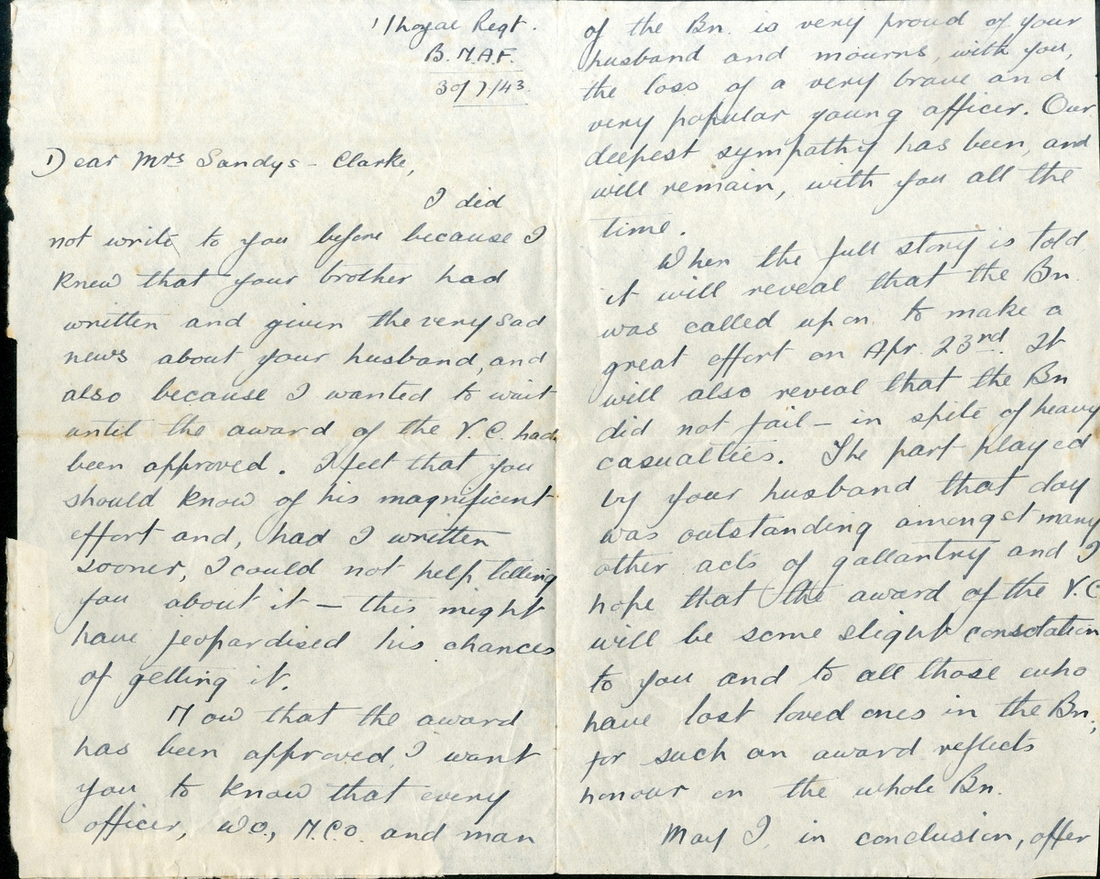 1 Loyal Regt.
B.N.A.F.
30/7/43
Dear Mrs Sandys-Clarke,
I did
not write to you before because I
knew that your brother had
written and given the very sad
news about your husband, and
also because I wanted to wait
until the award of the V.C. had
been approved. I felt that you
should know of his magnificent
effort and, had I written
sooner, I could not help telling
you about it — this might
have jeopardised his chances
of getting it.
Now that the award
has been approved, I want
you to know that every
officer, W.O., N.C.O. and man
of the Bn. is very proud of your
husband and mourns, with you,
the loss of a very brave and
very popular young officer. Our
deepest sympathy has been, and
will remain, with you all the
time.
When the full story is told
it will reveal that the Bn.
was called upon to make a
great effort on Apr. 23rd. It
will also reveal that the Bn
did not fail — in spite of heavy
casualties. The part played
by your husband that day
was outstanding amongst many
other acts of gallantry and I
hope that the award of the V.C
will be some slight consolation
to you and to all those who
have lost loved ones in the Bn;
for such an award reflects
honour on the whole Bn.
May I, in conclusion, offer